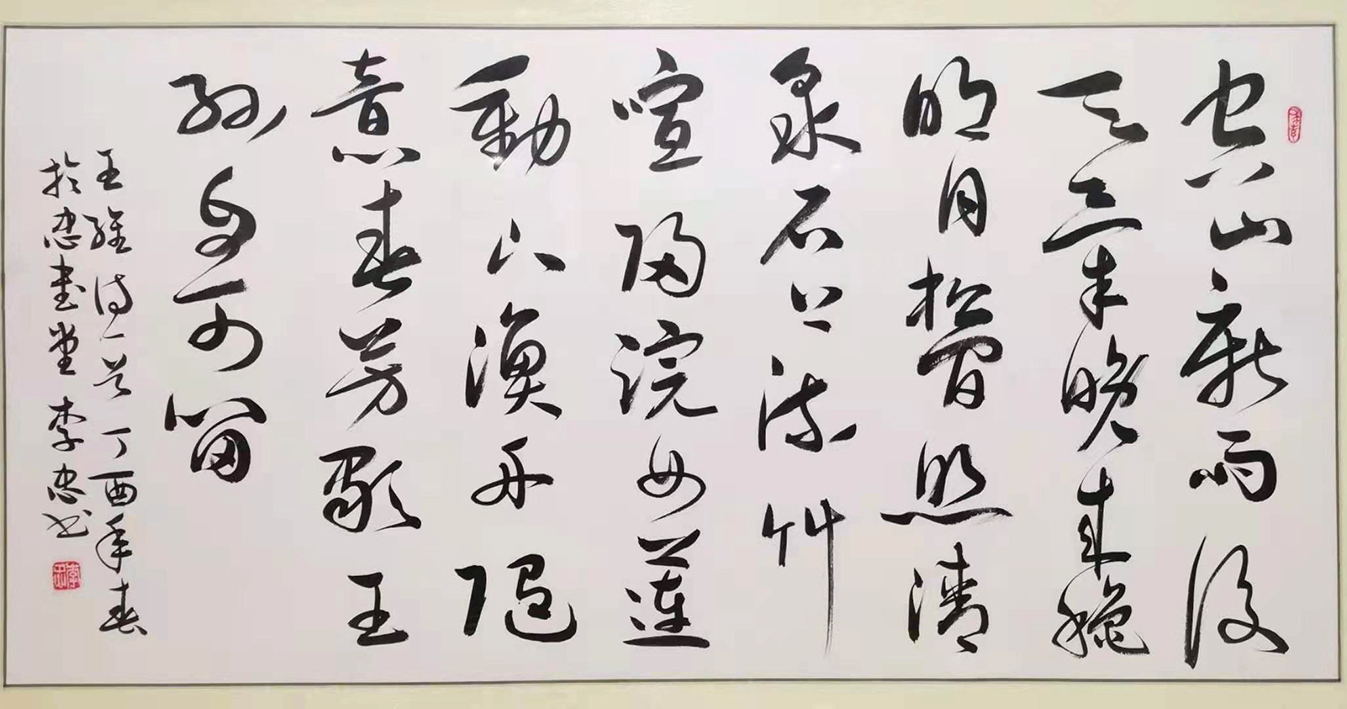 空山新雨後
天氣晚來穐
明月松間照清
泉石上流竹
喧歸浣女蓮
動下漁舟隨
意春芳歇王
孫自可留
王維詩一首 丁酉年春
於忠書堂 李忠書